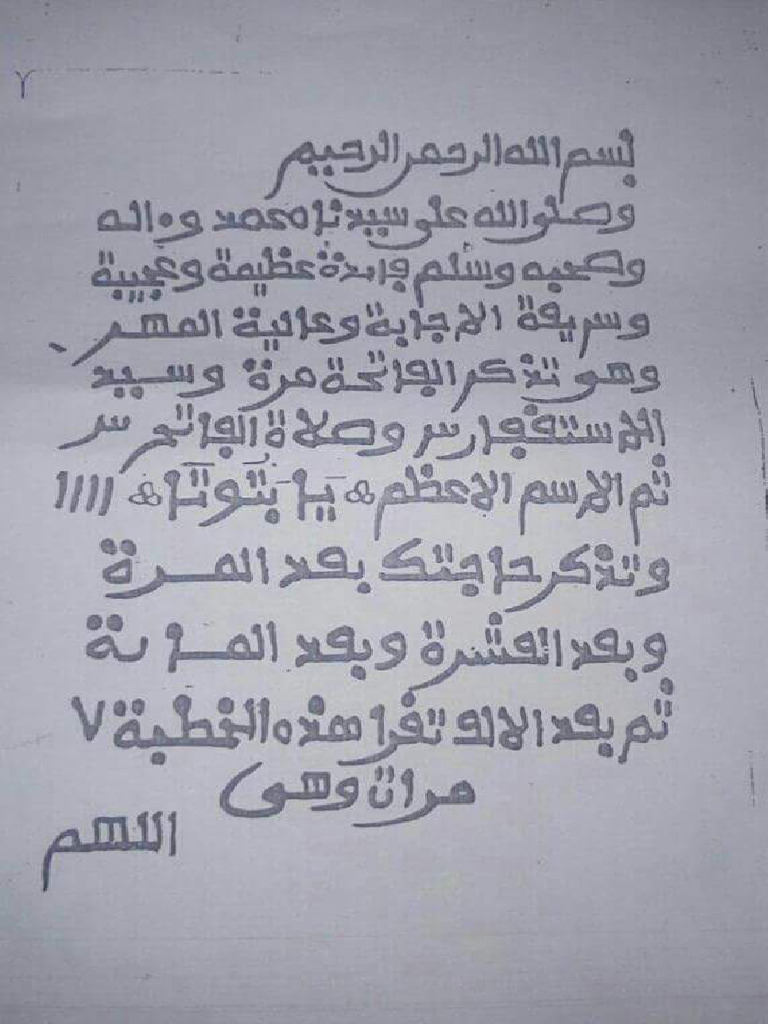 ٢
بسم الله الرحمن الرحيم
وصلى الله على سيدنا محمد وءاله
وصحبه وسلم فايدة عظيمة وعجيبة
وسريعة الاجابة وعالية المهر
وهو تذكر الفاتحة مرة وسيد
الاستغفار س وصلاة الفاتح س
ثم الاسم الاعظم ه يا بتوتا ه ١١١١
وتذكر حاجتك بعد المرة
وبعد العشرة وبعد الماية
ثم بعد الالف تقرا هذه الخطبة ٧
مرات وهي
اللهم